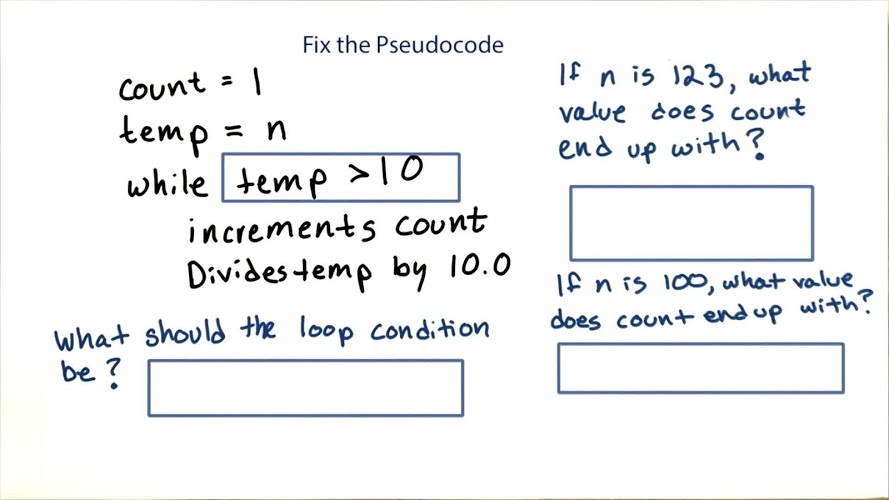 Fix the Pseudocode
count = 1
temp = n
while temp > 10
increments count
Divides temp by 10.0
What should the loop condition
be?
If n is 123, what
value does count
end up with?
If n is 100, what value
does count end up with?